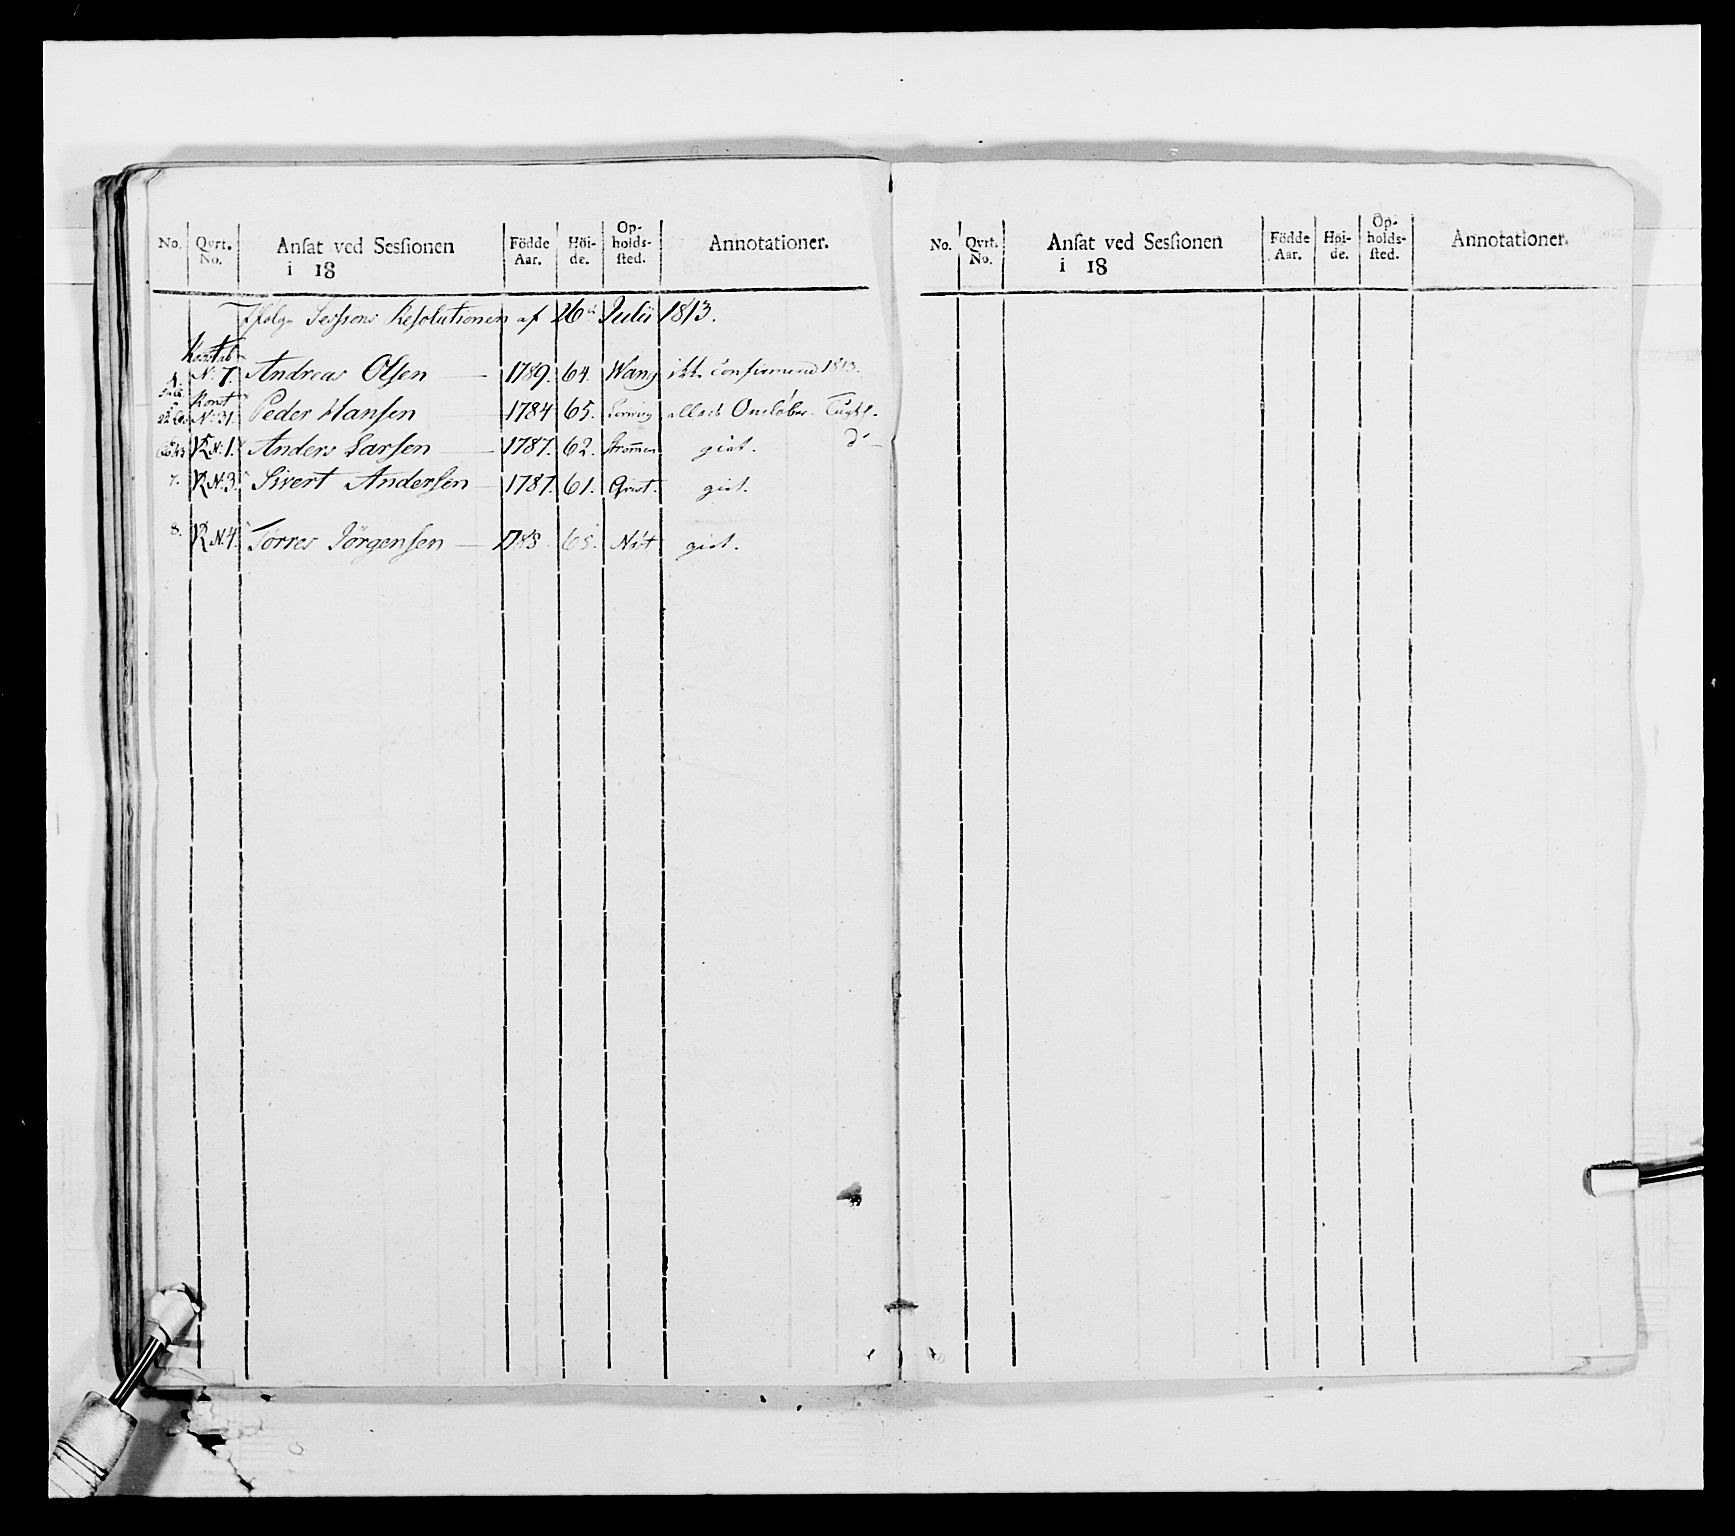 No. Qvrt. No. Anſat ved Sesſionen i 18 Födde Aar. Höi-de. Op-holds-ſted. Annotationer.
Ifölge Sessions Resolutionen af 26 Julii 1813.
Konstab
N: 7. Andreas Olsen 1789. 64. Wang ikke Confirmered 1813.
Konst
N: 31. Peder Hansen 1784 65.
K N: 1. Anders Larsen 1787. 62. Strömen givt. do
7. K N: 3. Sivert Andersen 1787. 61. givt.
8. K N: 4. Torres Jörgensen 65. givt.
No. Qvrt. No. Anſat ved Sesſionen i 18 Födde Aar. Höi-de. Op-holds-ſted. Annotationer.